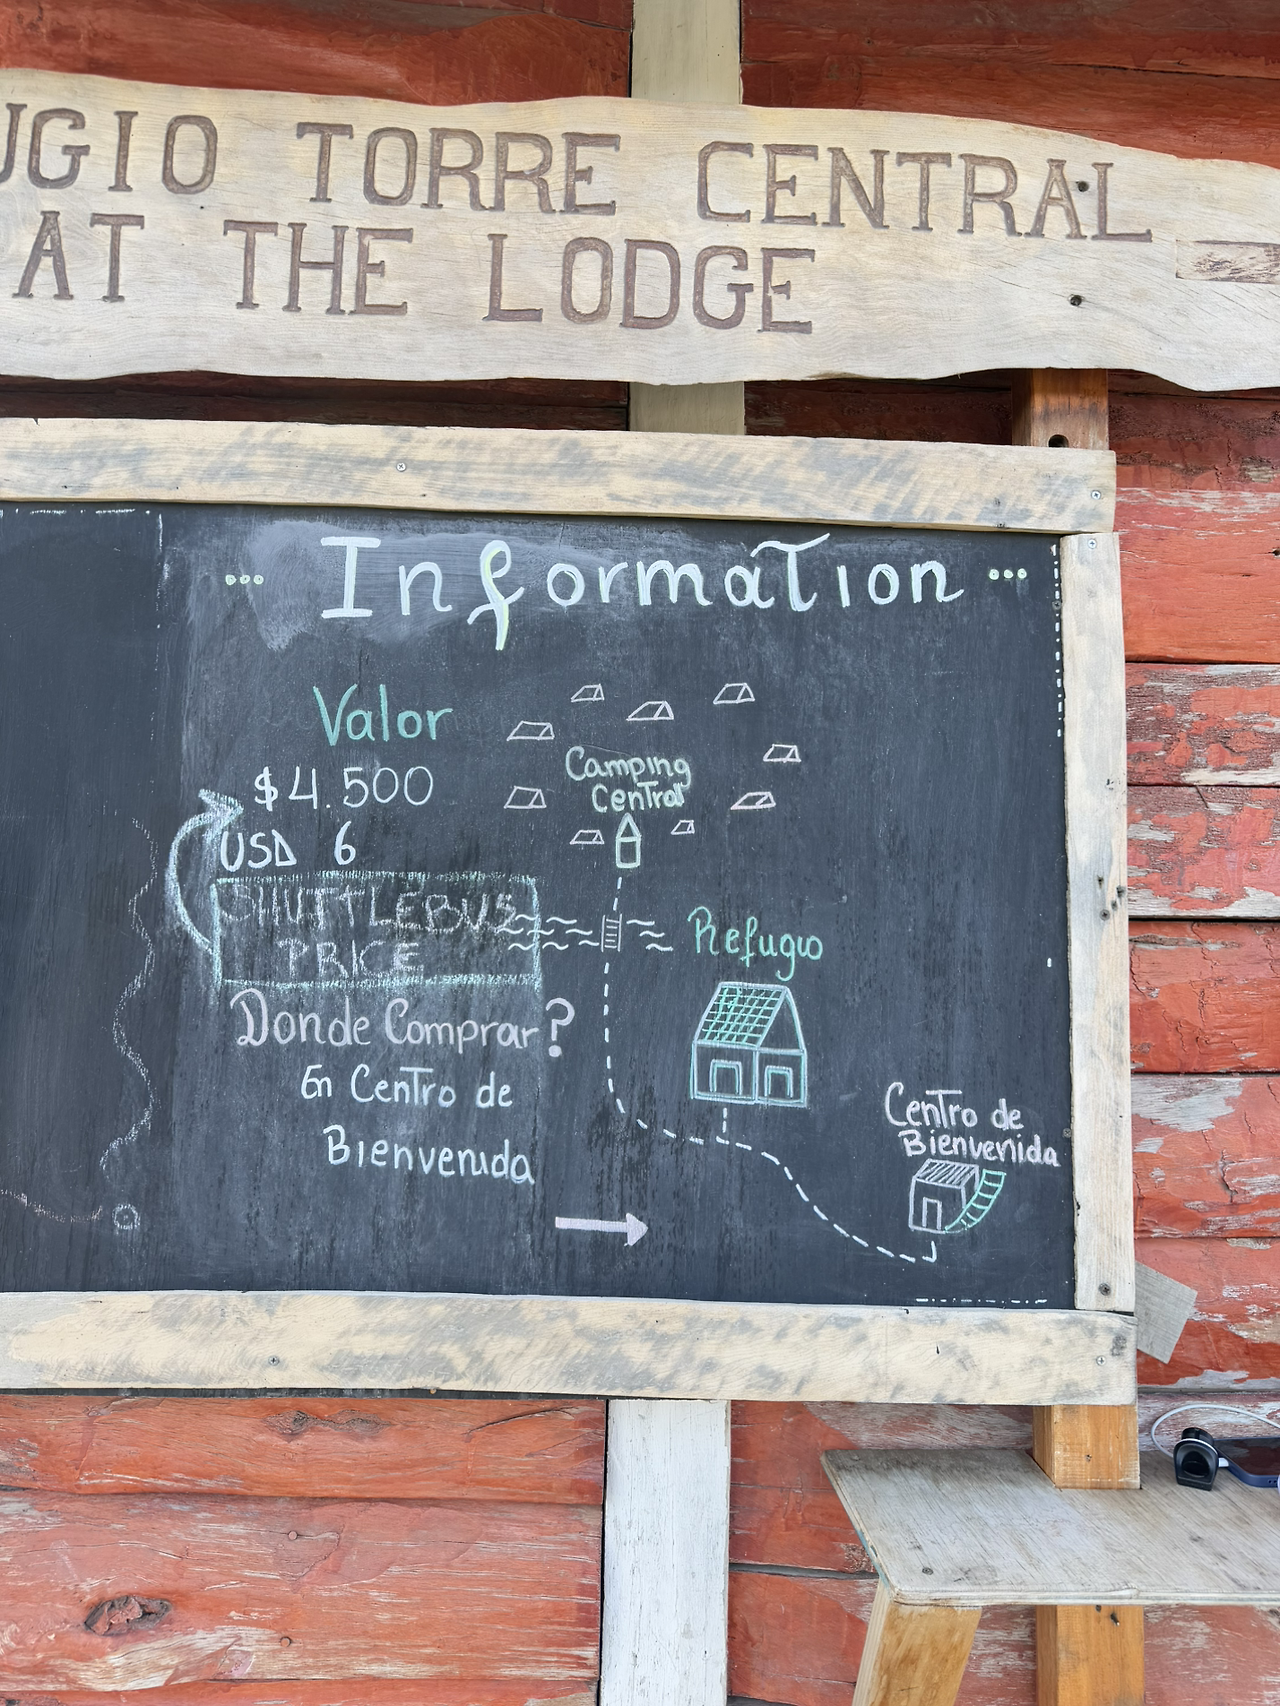 UGIO TORRE CENTRAL
AT THE LODGE
... Information ...
Valor
$4.500
USD 6
SHUTTLEBUS
PRICE
Donde Comprar?
En Centro de
Bienvenida
Camping
Central
Refugio
Centro de
Bienvenida